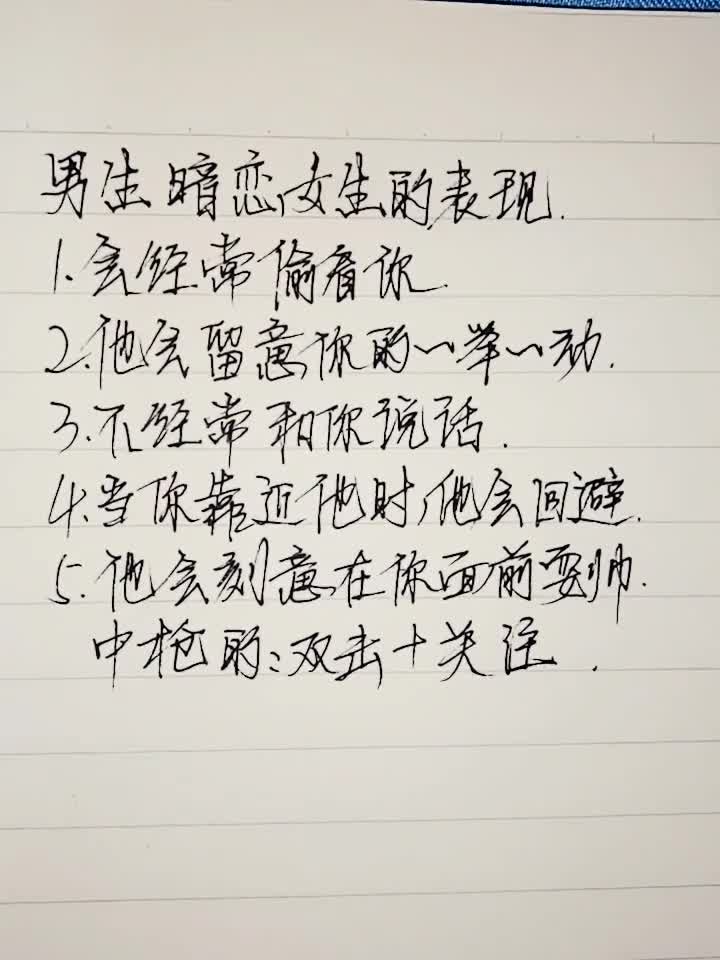 男生暗恋女生的表现.
1.会经常偷看你.
2.他会留意你的一举一动.
3.不经常和你说话.
4.当你靠近他时,他会回避.
5.他会刻意在你面前耍帅.
中枪的:双击+关注.